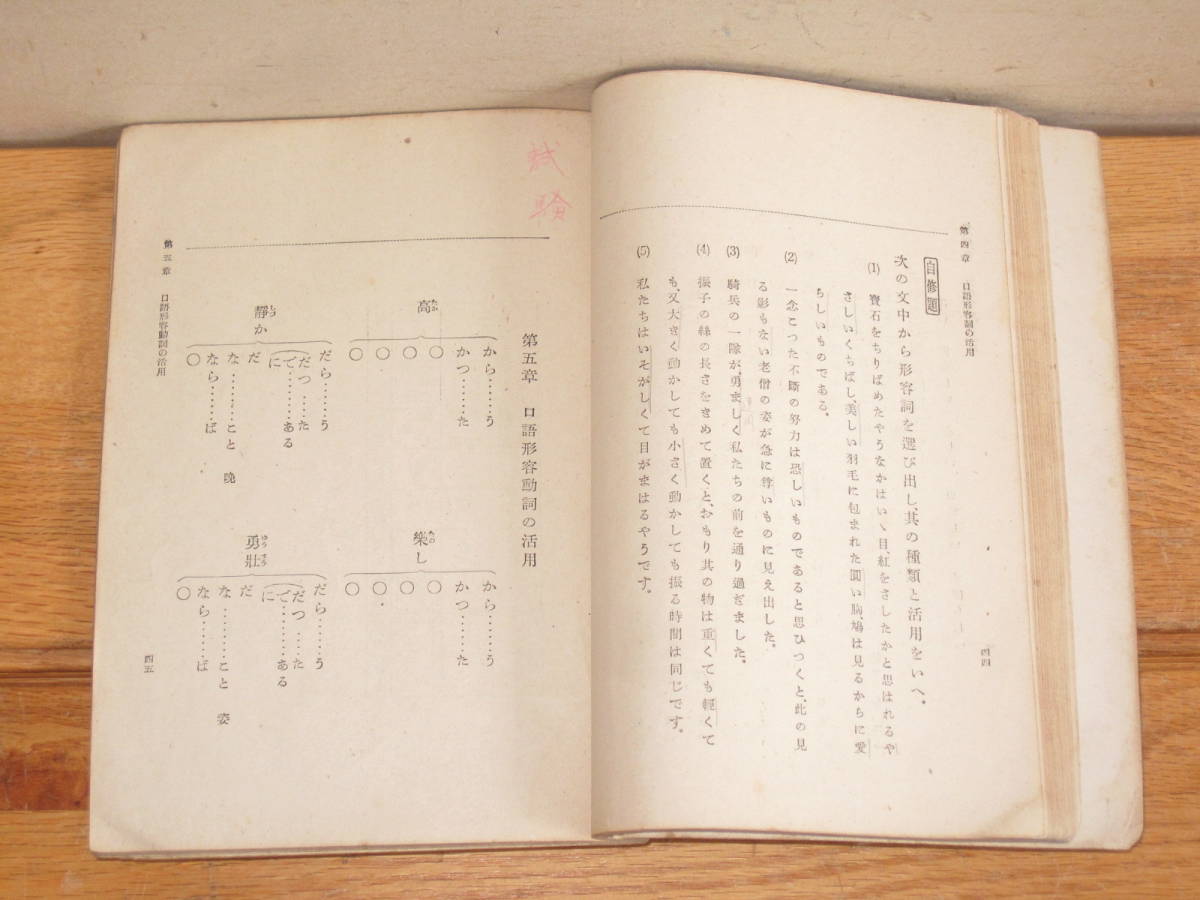 第四章　口語形容詞の活用
自修題
次の文中から形容詞を選び出し、其の種類と活用をいへ。
(1) 寶石をちりばめたやうなかはいゝ目、紅をさしたかと思はれるや
さしいくちばし、美しい羽毛に包まれた圓い胸、鳩は見るからに愛
らしいものである。
(2) 一念こつた不斷の努力は恐しいものであると思ひつくと、此の見
る影もない老僧の姿が急に尊いものに見え出した。
(3) 騎兵の一隊が、勇ましく私たちの前を通り過ぎました。
(4) 振子の絲の長さをきめて置くと、おもり其の物は重くても輕くて
も、又大きく動かしても小さく動かしても振る時間は同じです。
(5) 私たちはいそがしくて目がまはるやうです。
四四
試験
第五章　口語形容動詞の活用
高たか
から……う
かつ……た
〇
〇
〇
〇
樂たのし
から……う
かつ……た
〇
〇
〇
〇
靜しづか
だら……う
だつ……た
で………ある
に
だ
な………こと　晩
なら……ば
〇
勇壯ゆうさう
だら……う
だつ……た
で………ある
に
だ
な………こと　姿
なら……ば
〇
第五章　口語形容動詞の活用
四五